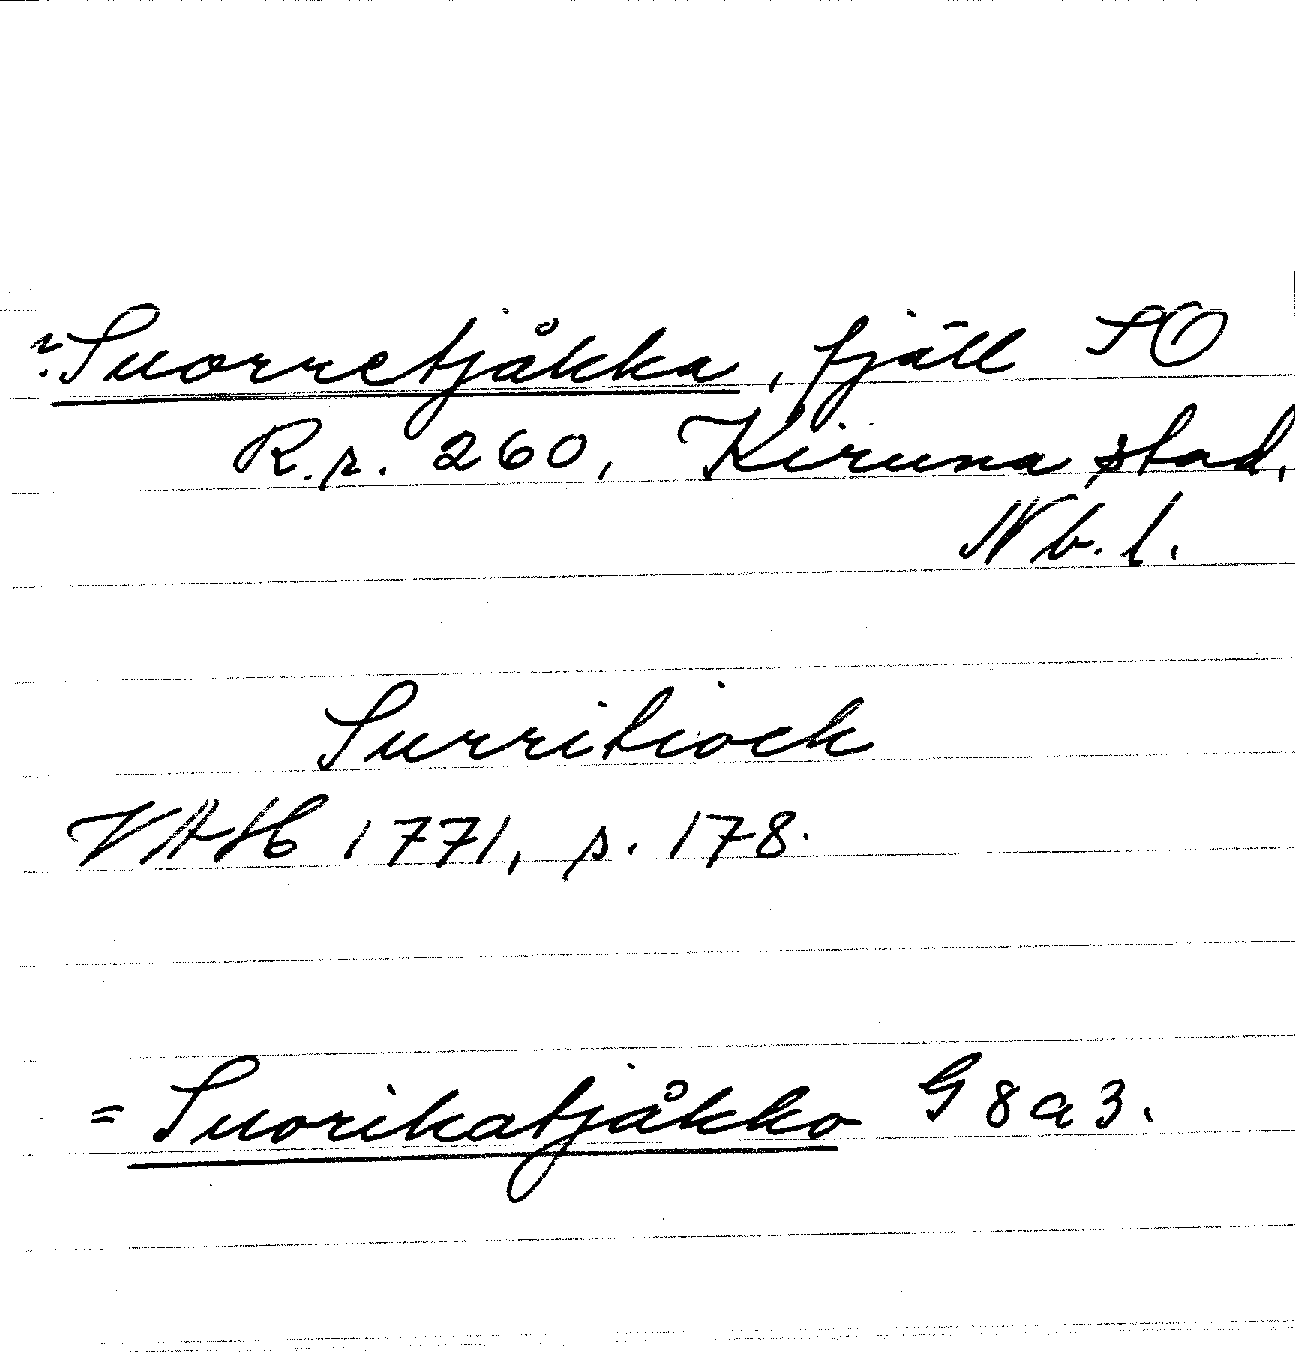 ?Suorretjåkka, fjäll SO
R.r. 260, Kiruna stad,
Nb. l.
Surritiock
VAH 1771, p. 178.
= Suorikatjåkko G8a3.